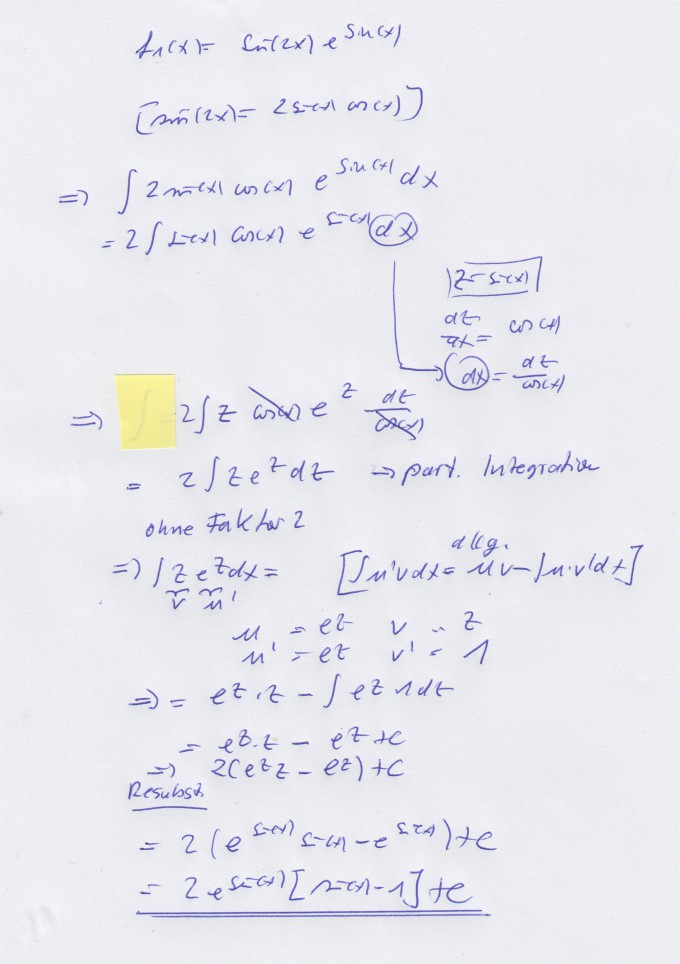 f₁(x)= sin(2x) e^sin(x)
[sin(2x)= 2 sin(x) cos(x)]
⇒ ∫ 2 sin(x) cos(x) e^sin(x) dx
= 2 ∫ sin(x) cos(x) e^sin(x) dx
z= sin(x)
dz/dx = cos(x)
dx = dz/cos(x)
⇒ ∫ = 2 ∫ z cos(x) e^z dz/cos(x)
= 2 ∫ z e^z dz → part. Integration
ohne Faktor 2
allg.
⇒ ∫ z e^z dx = [∫u'v dx = u v - ∫u·v' dx]
v u'
u = e^z v = z
u' = e^z v' = 1
⇒ = e^z · z - ∫ e^z 1 dz
= e^z · z - e^z + c
⇒ 2(e^z z - e^z) + c
Resubst.
= 2 (e^sin(x) sin(x) - e^sin(x)) + c
= 2 e^sin(x) [sin(x) - 1] + c